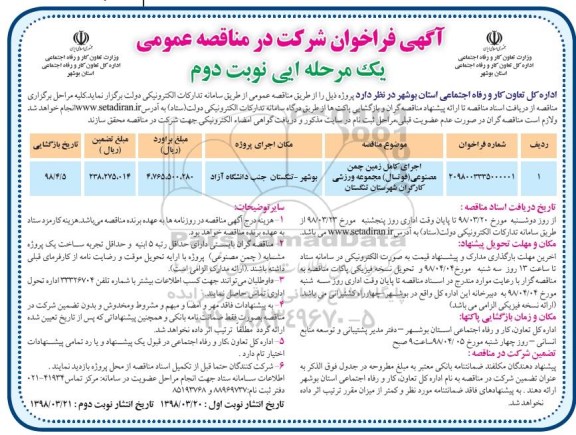 آگهی فراخوان شرکت در مناقصه عمومی
یک مرحله ایی نوبت دوم
وزارت تعاون کار و رفاه اجتماعی
اداره کل تعاون کار و رفاه اجتماعی
استان بوشهر
وزارت تعاون کار و رفاه اجتماعی
اداره کل تعاون کار و رفاه اجتماعی
استان بوشهر
اداره کل تعاون کار و رفاه اجتماعی استان بوشهر در نظر دارد پروژه ذیل را از طریق مناقصه عمومی از طریق سامانه تدارکات الکترونیکی دولت برگزار نماید.کلیه مراحل برگزاری
مناقصه از دریافت اسناد مناقصه تا ارائه پیشنهاد مناقصه گران و بازگشایی پاکت ها از طریق درگاه سامانه تدارکات الکترونیکی دولت(ستاد) به آدرس www.setadiran.ir انجام خواهد شد
ولازم است مناقصه گران در صورت عدم عضویت قبلی،مراحل ثبت نام در سایت مذکور و دریافت گواهی امضاء الکترونیکی جهت شرکت در مناقصه محقق سازند
ردیف شماره فراخوان موضوع مناقصه مکان اجرای پروژه مبلغ برآورد (ریال) مبلغ تضمین (ریال) تاریخ بازگشایی
۱ ۲۰۹۸۰۰۳۳۳۵۰۰۰۰۰۱ اجرای کامل زمین چمن مصنوعی(فوتسال) مجموعه ورزشی کارگران شهرستان تنگستان بوشهر -تنگستان جنب دانشگاه آزاد ۴،۷۶۵،۵۰۰،۲۸۰ ۲۳۸،۲۷۵،۰۱۴ ۹۸/۴/۵
تاریخ دریافت اسناد مناقصه :
از روز دوشنبه مورخ ۹۸/۰۳/۲۰ تا پایان وقت اداری روز پنجشنبه مورخ ۹۸/۰۳/۲۳ از
طریق سامانه تدارکات الکترونیکی دولت(ستاد) به آدرس www.setadiran.ir می باشد.
مکان و مهلت تحویل پیشنهاد:
آخرین مهلت بارگذاری مدارک و پیشنهاد قیمت به صورت الکترونیکی در سامانه ستاد
تا ساعت ۱۳ روز سه شنبه مورخ ۹۸/۰۴/۰۴ و تحویل نسخه فیزیکی پاکات مناقصه به
مناقصه گزار با رعایت موارد مندرج در اسناد مناقصه تا پایان وقت اداری روز سه شنبه
مورخ ۹۸/۰۴/۰۴ به دبیرخانه این اداره کل واقع در بوشهر- چهارراه کشتیرانی می باشد
(ارائه نسخه فیزیکی الزامی می باشد).
مکان و زمان بازگشایی پاکتها:
اداره کل تعاون، کار و رفاه اجتماعی استان بوشهر – دفتر مدیر پشتیبانی و توسعه منابع
انسانی – روز چهار شنبه مورخ ۹۸/۰۴/۰۵ ساعت۹ صبح
تضمین شرکت در مناقصه :
پیشنهاد دهندگان مکلفند ضمانتنامه بانکی معتبر به مبلغ مطروحه در جدول فوق الذکر به
عنوان تضمین شرکت در مناقصه به نام اداره کل تعاون، کار و رفاه اجتماعی استان بوشهر
ارائه دهند . به پیشنهادهای فاقد ضمانتنامه مورد نظر و کمتر از میزان مقرر ترتیب اثر داده
نخواهد شد.
سایر توضیحات:
۱- هزینه درج آگهی مناقصه در روزنامه ها به عهده برنده مناقصه می باشد.هزینه کارمزد ستاد
به عهده برنده مناقصه خواهد بود.
۲- مناقصه گران بایستی دارای حداقل رتبه ۵ ابنیه و حداقل تجربه ساخت یک پروژه
مشابه ( چمن مصنوعی) پروژه با ارایه تحویل موقت و رضایت نامه از کارفرمای قبلی
داشته باشند .(ارائه مدارک الزامی است).
۳- داوطلبان می توانند جهت کسب اطلاعات بیشتر با شماره تلفن ۳۳۳۲۶۷۰۴ اداره تحول
اداری تماس حاصل نمایند.
۴- به پیشنهادات فاقد مهر و امضا و مبهم و مشروط و مخدوش و بدون تضمین شرکت در
مناقصه بصورت فقط ضمانت نامه بانکی و همچنین پیشنهاداتی که پس از تاریخ تعیین شده
ارائه گردد مطلقا ترتیب اثر داده نخواهد شد.
۵- اداره کل تعاون، کار و رفاه اجتماعی در قبول یک پیشنهاد و یا رد تمامی پیشنهادات
اختیار تام دارد .
۶- شرکت کنندگان حتما قبل از تکمیل اسناد مناقصه از محل پروژه بازدید نمایند .
اطلاعات سامانه ستاد جهت انجام مراحل عضویت در سامانه: مرکز تماس ۴۱۹۳۴-۰۲۱
دفتر ثبت نام:۸۸۹۶۹۷۳۷ و ۸۵۱۹۳۷۶۸
تاریخ انتشار نوبت اول : ۱۳۹۸/۰۳/۲۰ تاریخ انتشار نوبت دوم : ۱۳۹۸/۰۳/۲۱